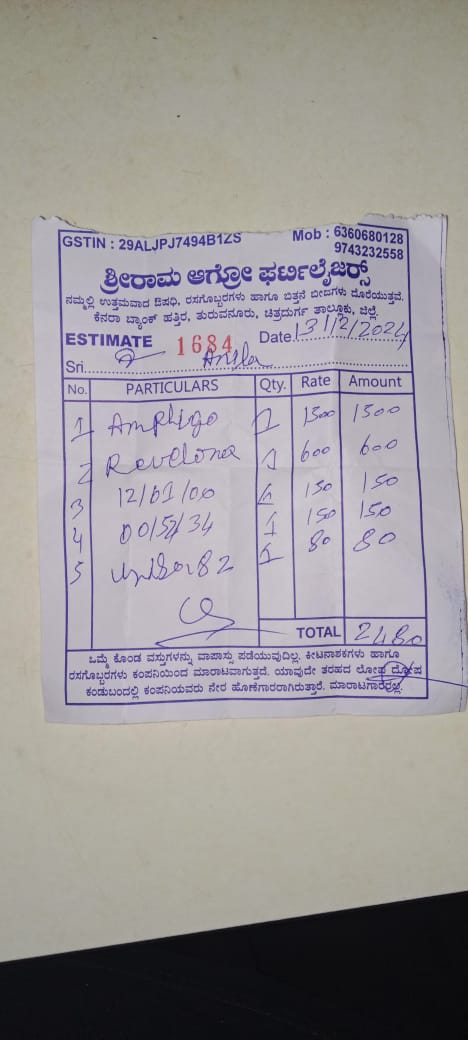 GSTIN : 29ALJPJ7494B1ZS Mob : 6360680128
9743232558
ಶ್ರೀರಾಮ ಆಗ್ರೋ ಫರ್ಟಿಲೈಜರ್ಸ್
ನಮ್ಮಲ್ಲಿ ಉತ್ತಮವಾದ ಔಷಧಿ, ರಸಗೊಬ್ಬರಗಳು ಹಾಗೂ ಬಿತ್ತನೆ ಬೀಜಗಳು ದೊರೆಯುತ್ತವೆ.
ಕೆನರಾ ಬ್ಯಾಂಕ್ ಹತ್ತಿರ, ತುರುವನೂರು, ಚಿತ್ರದುರ್ಗ ತಾಲ್ಲೂಕು, ಜಿಲ್ಲೆ.
ESTIMATE 1684 Date 13/12/2024
Sri.
No. PARTICULARS Qty. Rate Amount
1 Ampligo 1 1500 1500
2 Revelona 1 600 600
3 12/61/00 1 150 150
4 00/52/34 1 150 150
5 80 80
TOTAL 2480
ಒಮ್ಮೆ ಕೊಂಡ ವಸ್ತುಗಳನ್ನು ವಾಪಾಸ್ಸು ಪಡೆಯುವುದಿಲ್ಲ. ಕೀಟನಾಶಕಗಳು ಹಾಗೂ
ರಸಗೊಬ್ಬರಗಳು ಕಂಪನಿಯಿಂದ ಮಾರಾಟವಾಗುತ್ತದೆ. ಯಾವುದೇ ತರಹದ ಲೋಪ ದೋಷ
ಕಂಡುಬಂದಲ್ಲಿ ಕಂಪನಿಯವರು ನೇರ ಹೊಣೆಗಾರರಾಗಿರುತ್ತಾರೆ. ಮಾರಾಟಗಾರರಲ್ಲ.